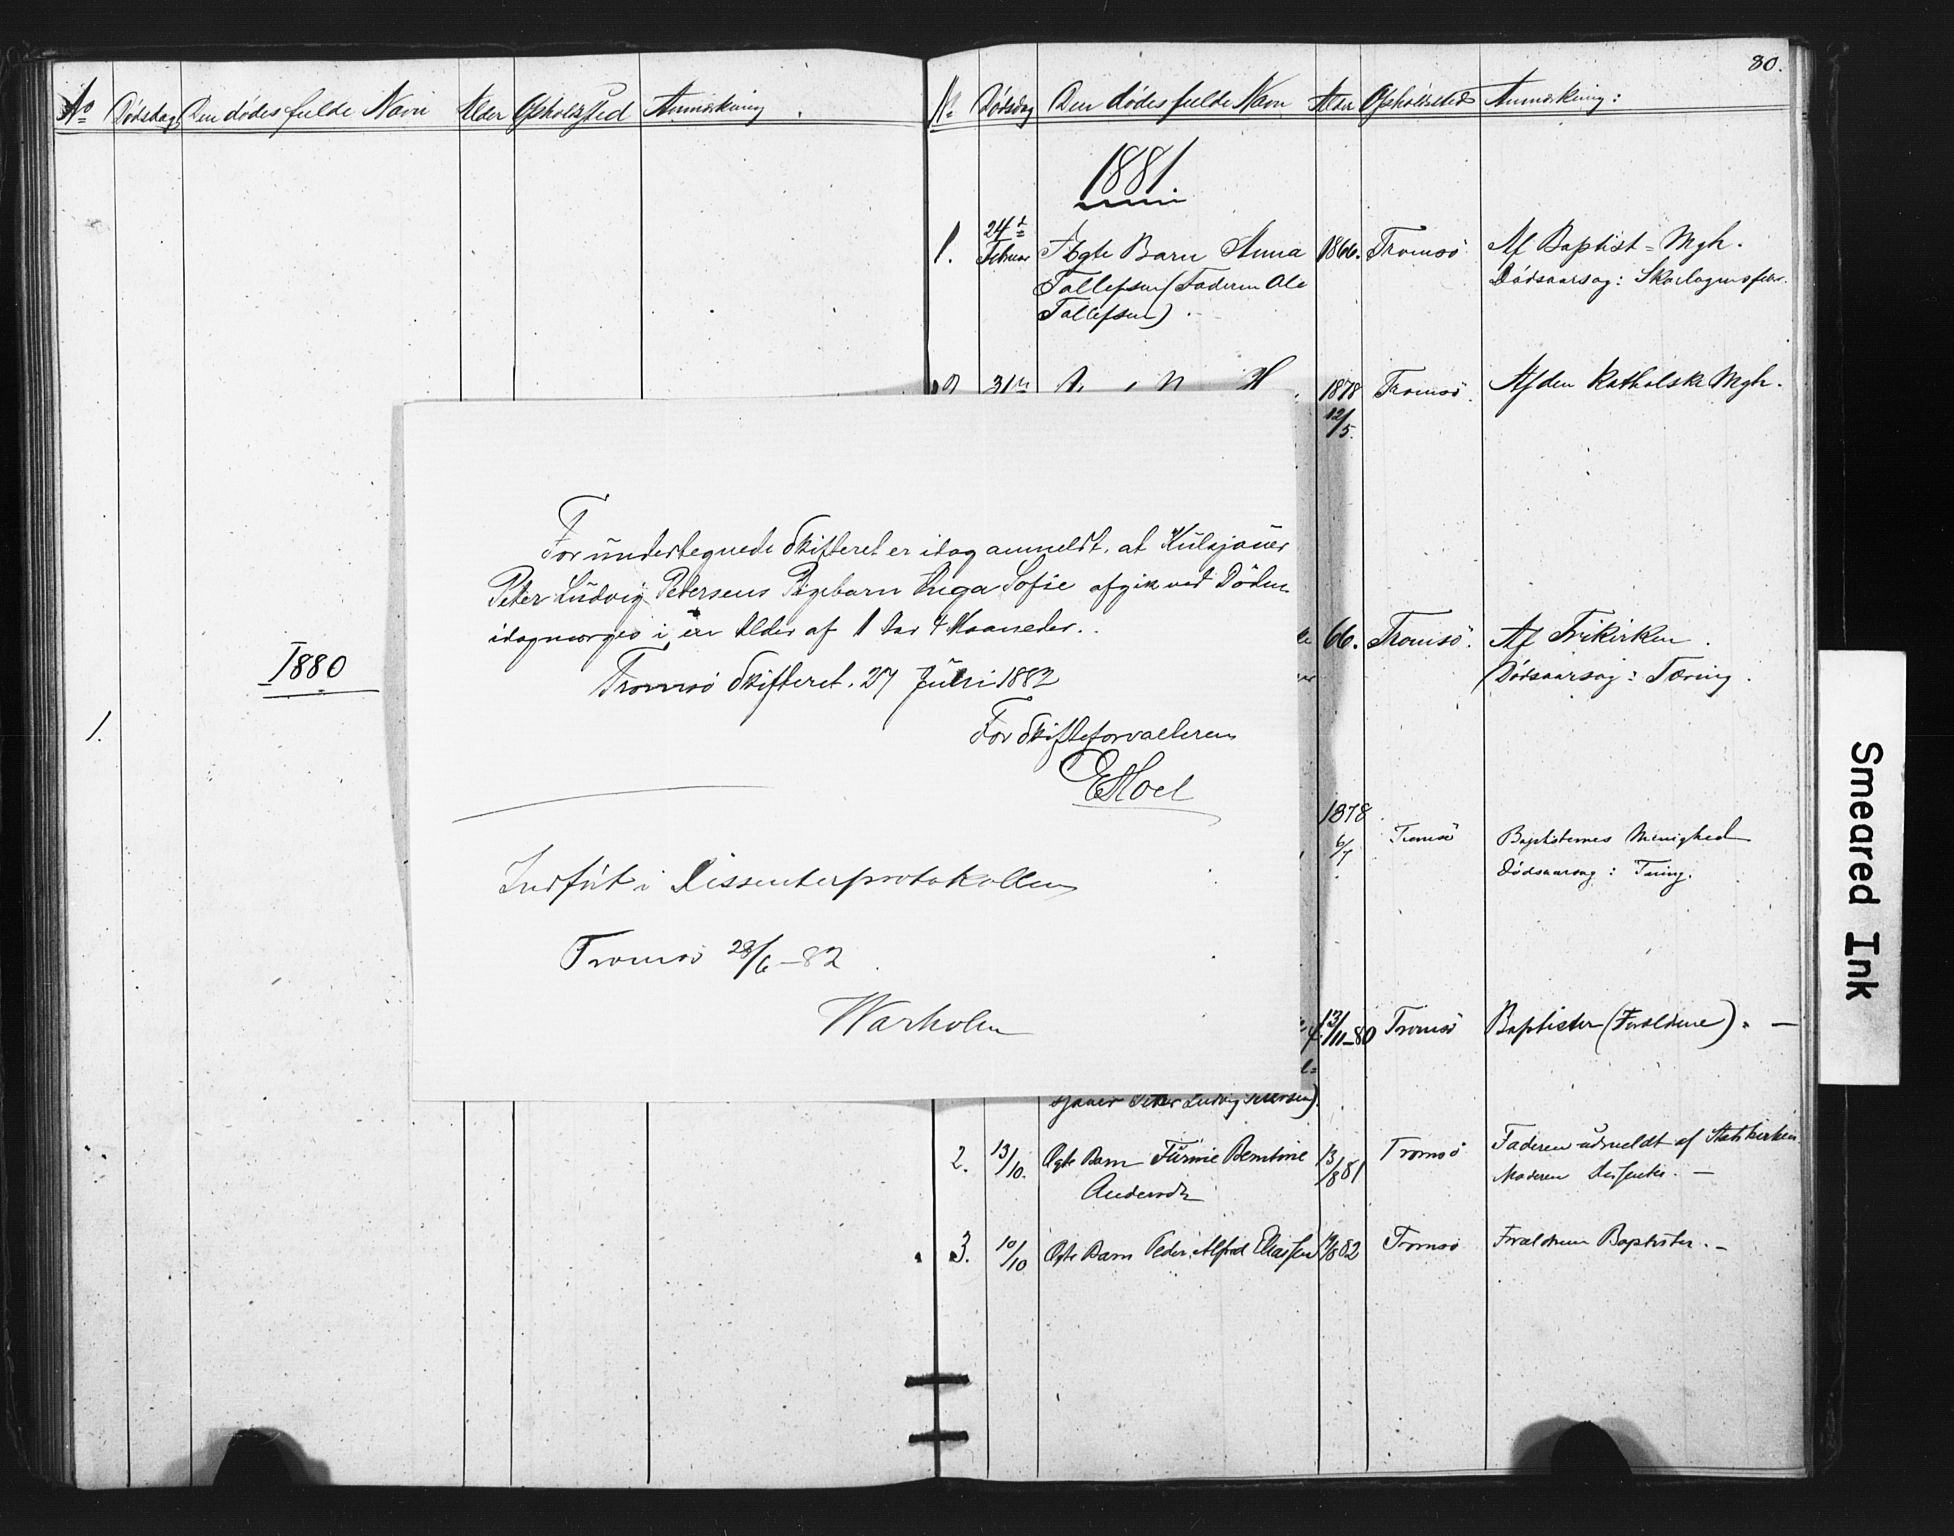 No Dødsdag Den dødes fulde Navn Alder Opholdssted Anmærkning.
1880
1.
30.
No Dødsdag Den dødes fulde Navn Alder Opholdssted Anmærkning:
1881.
1. 24de Februar Ægte Barn Anna 1866. Tromsø Af Baptist=Mgh.
Tollefsen (Faderen Ole Dødsaarsag: Skarlagensfeber.
Tollefsen).
31te 1878 Tromsø. Af den katholske Mgh.
12/5.
66. Tromsø. Af Frikirken.
Dødsaarsag: Tæring.
1878 Tromsø Baptisternes Menighed
6/7 Dødsaarsag: Tæring.
13/11-80 Tromsø Baptister (Forældrene). —
sjauer Peter Ludvig Petersen).
2. 13/10. Ægte Barn Bentine 13/8 81 Tromsø Faderen udmeldt af Statskirken
Moderen Dissenter. —
3. 10/10 Ægte Barn Peder Alfred Eliassen 82 Tromsø Forældrene Baptister. —
For undertegnede Skifteret er idag anmeldt, at Kulsjauer
Peter Ludvig Petersens Pigebarn Inga Sofie afgik ved Døden
idagmorges i en Alder af 1 Aar 4 Maaneder.
Tromsø Skifteret, 27 Juni 1882
For Skifteforvalteren
EMoel
Indført i Dissenterprotokollen
Tromsø 28/6 – 82.
Warholm
Smeared Ink